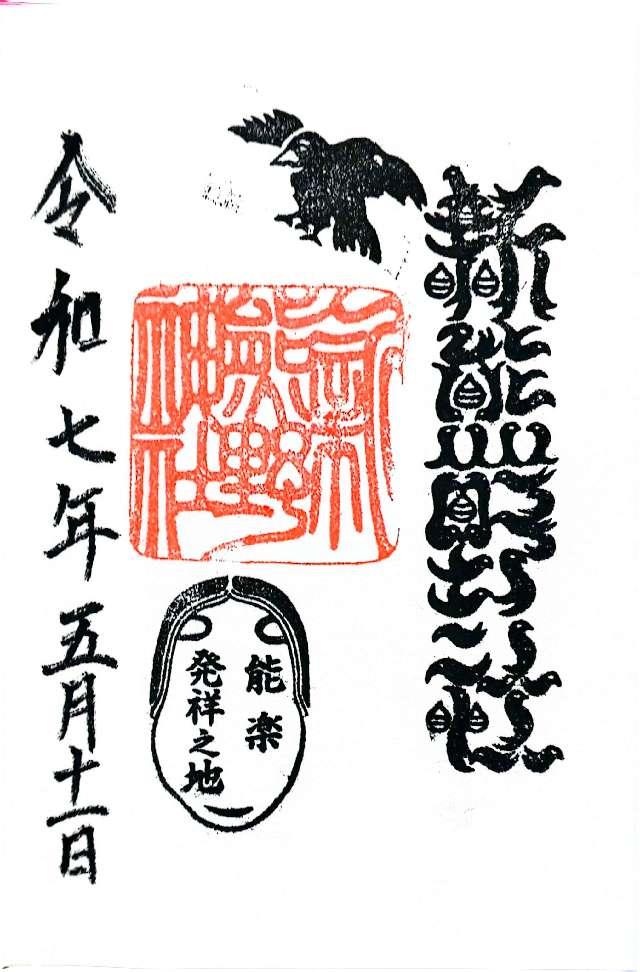 新熊野
新熊野神社
能楽
発祥之地
令和七年五月十一日